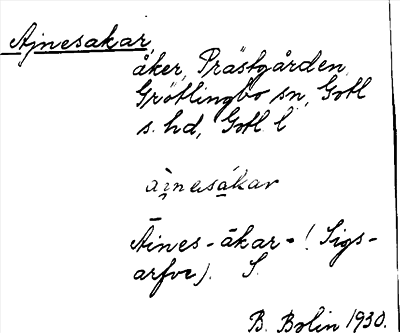 Ajnesakar,
åker, Prästgården,
Grötlingbo sn, Gotl
s. hd, Gotl. l.
ajnesakar
Aines-åkar- (Sigs-
arfve). S.
B. Bolin 1930.